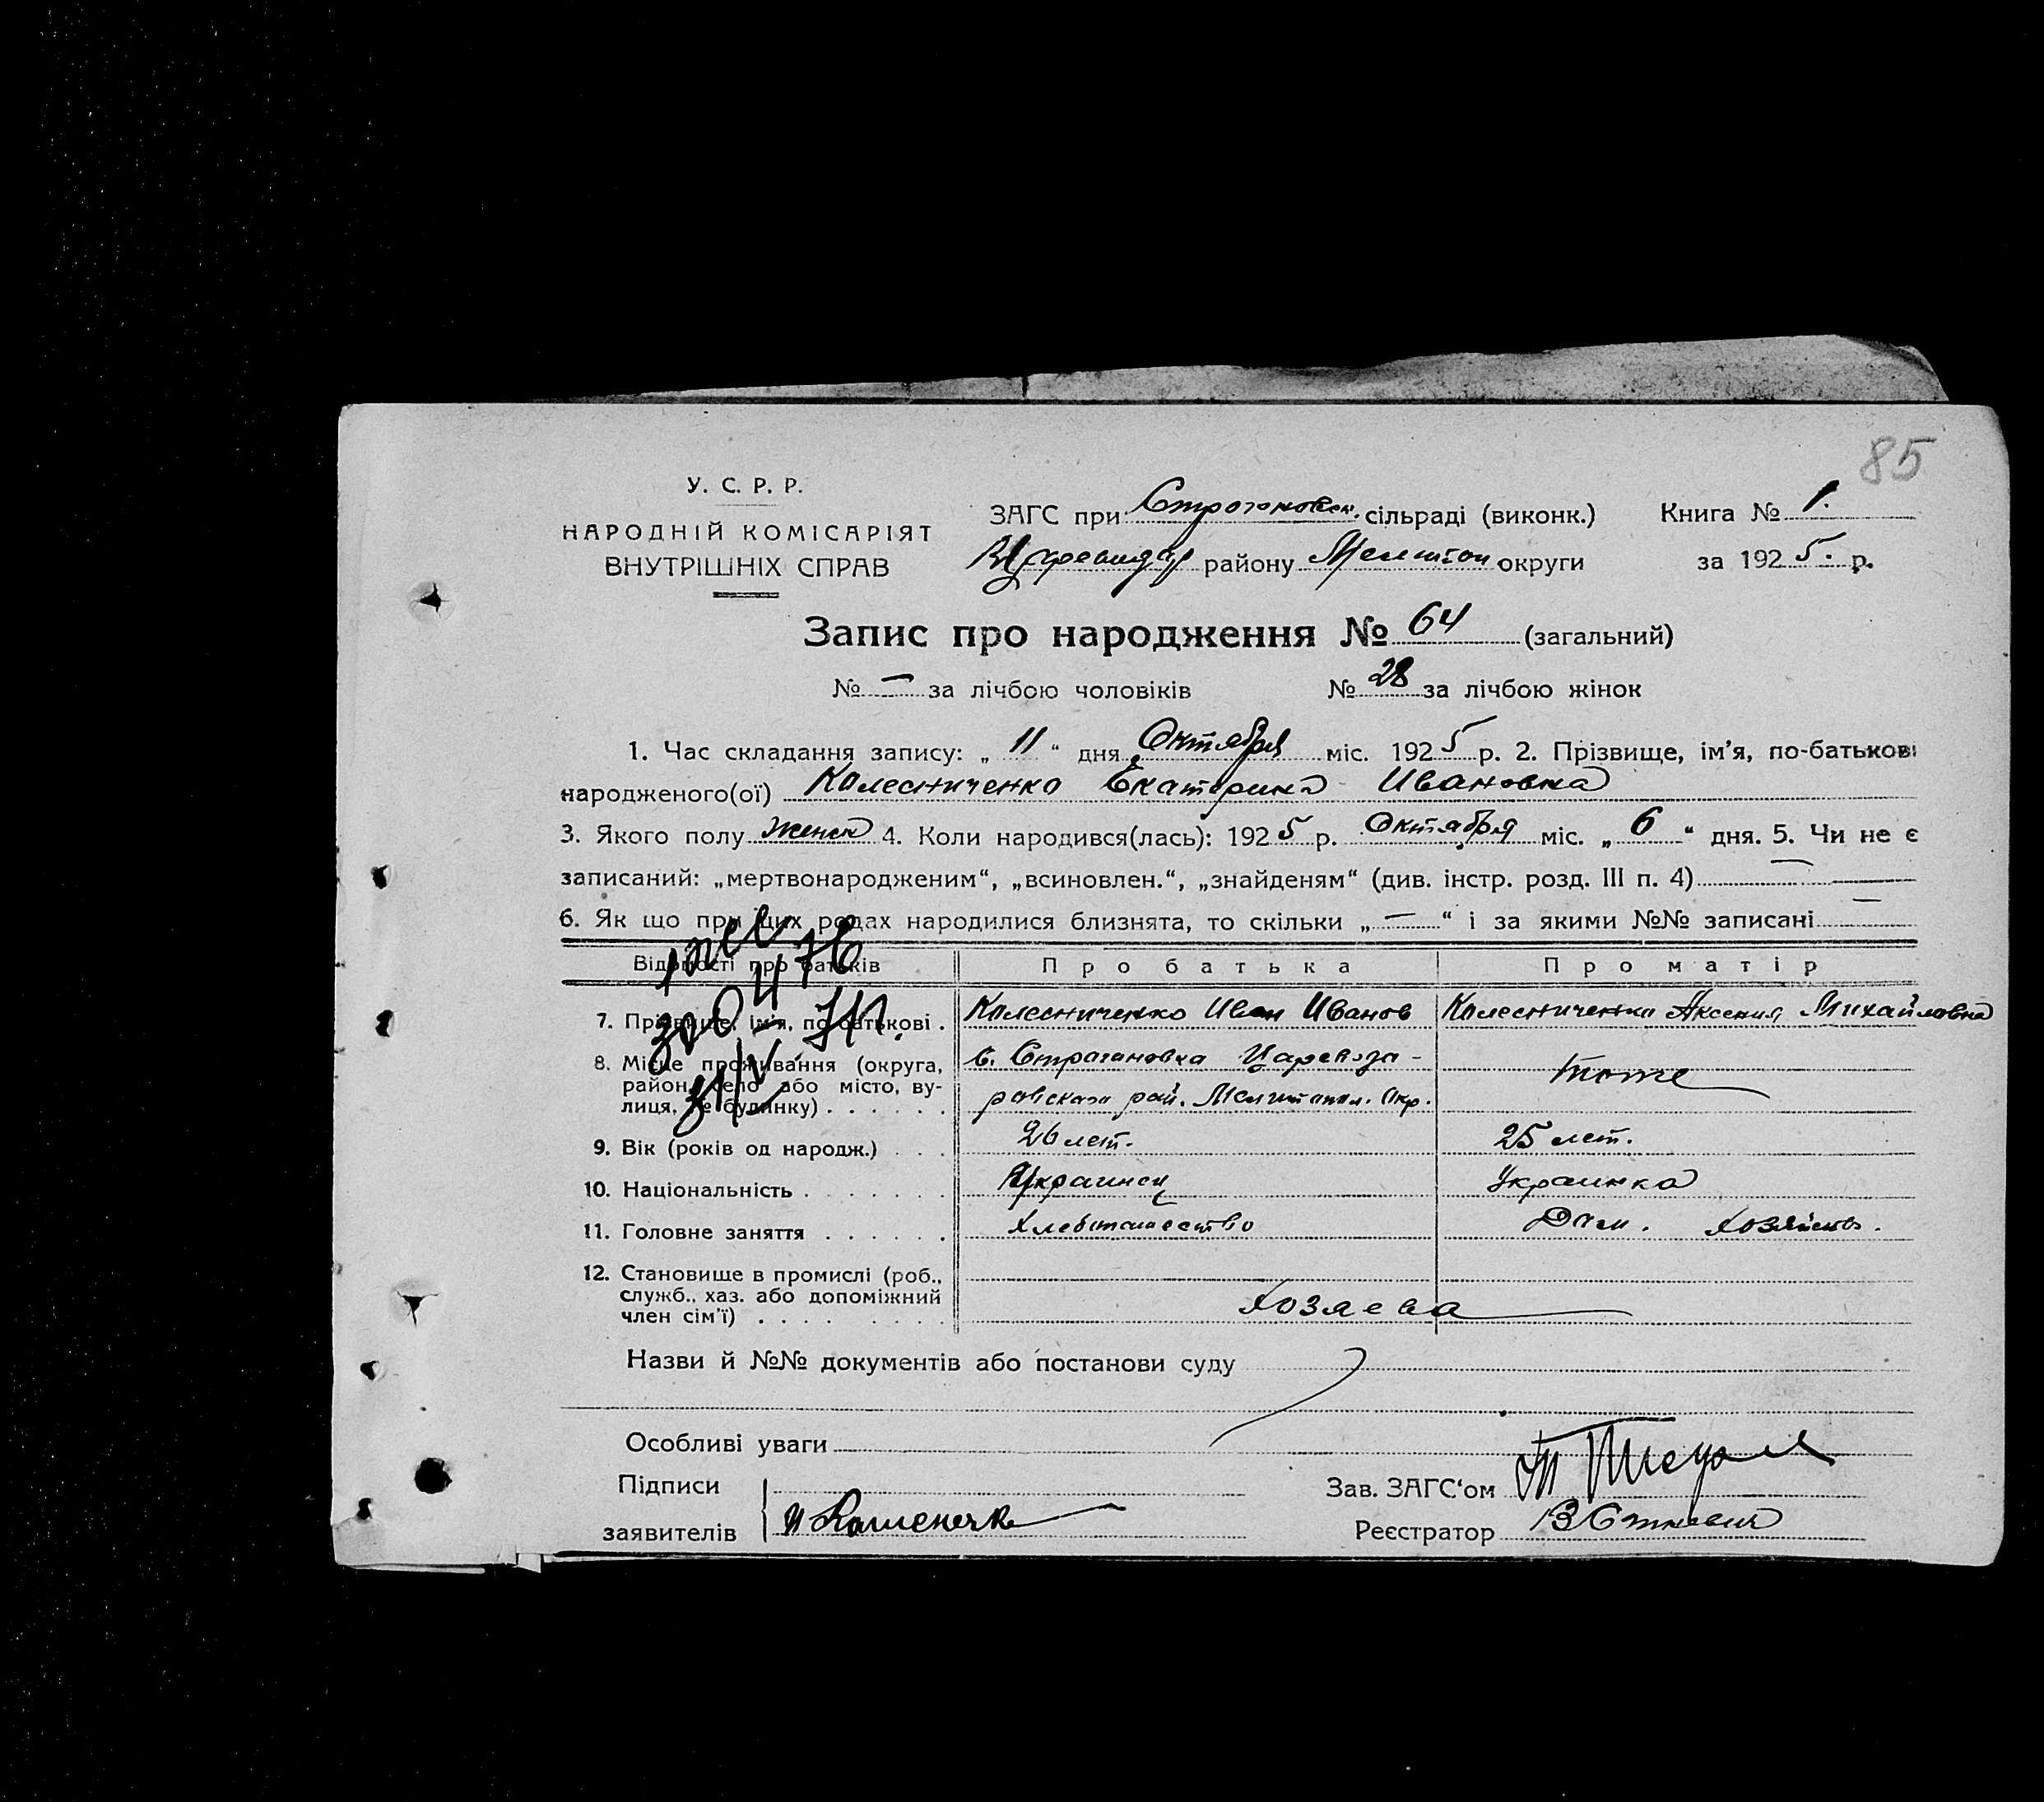 85
У. С. Р. Р.
НАРОДНІЙ КОМІСАРІЯТ
ВНУТРІШНІХ СПРАВ
ЗАГС при Строгоновск. сільраді (виконк.) Книга № 1.
району Мелитоп округи за 1925. р.
Запис про народження № 64 (загальний)
№ — за лічбою чоловіків № 28 за лічбою жінок
1. Час складання запису: „ 11 “ дня Октября міс. 1925 р. 2. Прізвище, ім’я, по-батькові
народженого(ої) Колесниченко Екатерина Ивановна
3. Якого полу женск 4. Коли народився(лась): 1925 р. Октября міс. „ 6 “ дня. 5. Чи не є
записаний: „мертвонародженим“, „всиновлен.“, „знайденям“ (див. інстр. розд. III п. 4) —
6. Як що при цих родах народилися близнята, то скільки „ — “ і за якими №№ записані —
Відомості про батьків Про батька Про матір
7. Прізвище, ім’я, по батькові . Колесниченко Иван Иванов Колесниченко Аксения Михайловна
8. Місце проживання (округа, район, село або місто, вулиця, № будинку) . . . . . . с. Строгановка Царевода-
ровского рай. Мелитопол. Окр. тоже
9. Вік (років од народж.) . . . 26 лет. 25 лет.
10. Національність . . . . . . . Украинец Украинка
11. Головне заняття . . . . . . Хлебопашество Дом. хозяйство.
12. Становище в промислі (роб.,
служб., хаз. або допоміжний
член сім’ї) . . . . . . . . Хозяева
Назви й №№ документів або постанови суду
Особливі уваги
Підписи
заявителів
Зав. ЗАГС‘ом
Реєстратор